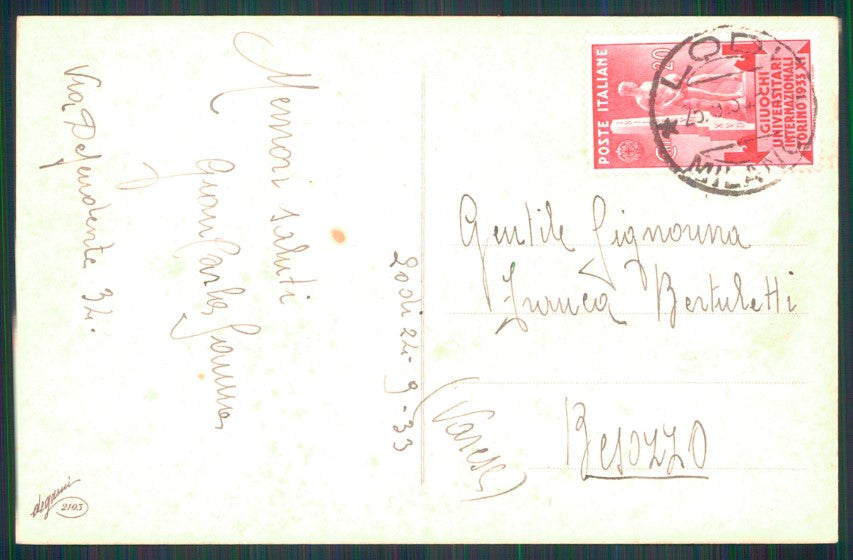 Memori saluti
Gian Carlo
Via Defendente 34.
Lodi 24-9-33
degami
2103
POSTE ITALIANE
20
GIUOCHI
UNIVERSITARI
INTERNAZIONALI
TORINO 1933 XI
LODI
MILANO
Gentile Signorina
Bertuletti
Besozzo
(Varese)